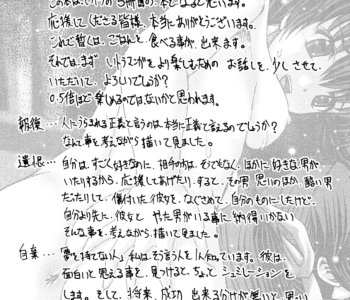 この本は、いくつの5冊目の、本になると思います。
応援してくださる皆様、本当にありがとうございます。
これで暫くは、ごはんを食べる事が、出来ます。
それでは、まず をより楽しむための お話しを、少しさせて
いただいて、よろしいでしょうか?
0.5倍ほど楽しめるのではないかと思われます。
報復… 人にうらまれる正義と言うのは、本当に正義と言えるのでしょうか?
なんて事を考えながら描いて見ました。
遺恨… 自分は、すごく好きなのに、相手の方は、そうでもなく、ほかに好きな男が
いたりするから、応援してあげたり、すると、その男 思いのほか、酷い男
だったりして、傷付いた彼女を、なぐさめて、自分のものにしたけど、
自分より先に、彼女と やた男がいる事に納得いかない
そんな事を、考えながら、描いて見ました。
自棄… 「夢を捨てない人」私は、そう言う人を 人知っています。彼は、
面白いと思える事を、見つけると、ちょと シュミレーションを
します。そして、将来、成功 出来る分けが無いと 思い